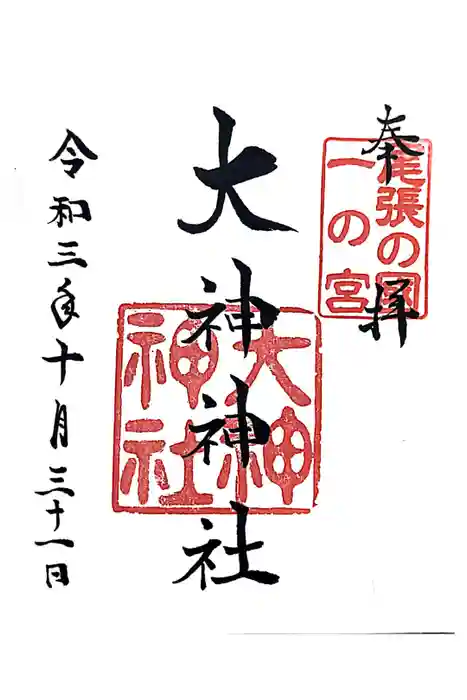 奉拝
尾張の國
一の宮
大神神社
大神
神社
令和三年十月三十一日